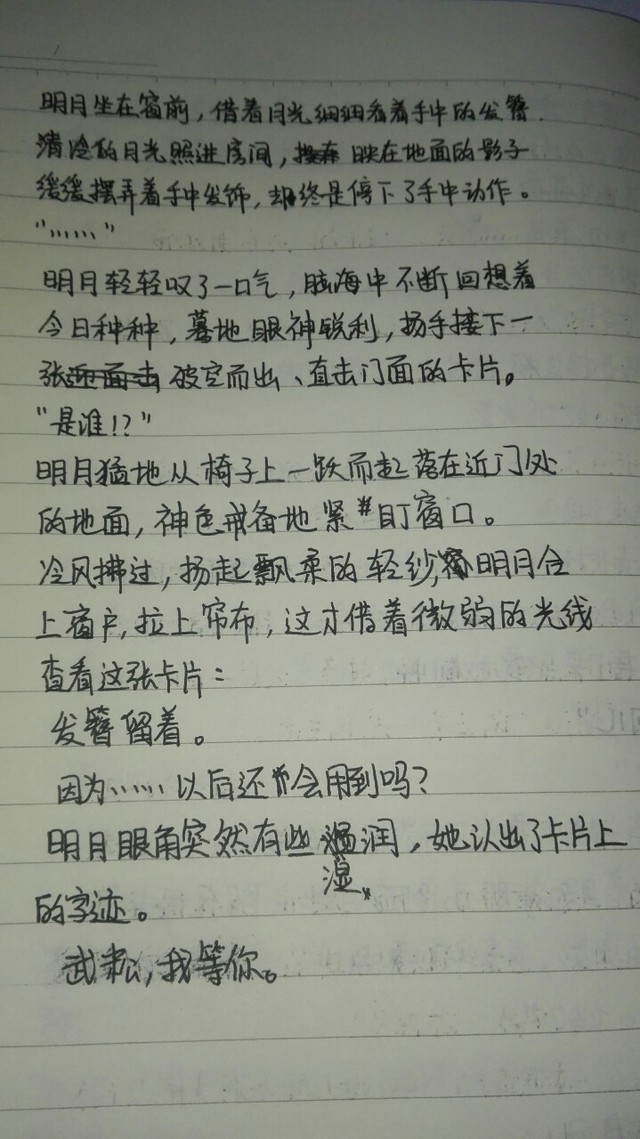 明月坐在窗前，借着月光细细看着手中的发簪．
清冷的月光照进房间，映在地面的影子
缓缓摆弄着手中发饰，却终是停下了手中动作。
“……”
明月轻轻叹了一口气，脑海中不断回想着
今日种种，蓦地眼神锐利，扬手接下一
张破空而出、直击门面的卡片。
“是谁！？”
明月猛地从椅子上一跃而起落在近门处
的地面，神色戒备地紧盯窗口。
冷风拂过，扬起飘柔的轻纱，明月合
上窗户，拉上帘布，这才借着微弱的光线
查看这张卡片：
发簪留着。
因为……以后还会用到吗？
明月眼角突然有些湿润，她认出了卡片上
的字迹。
武松，我等你。